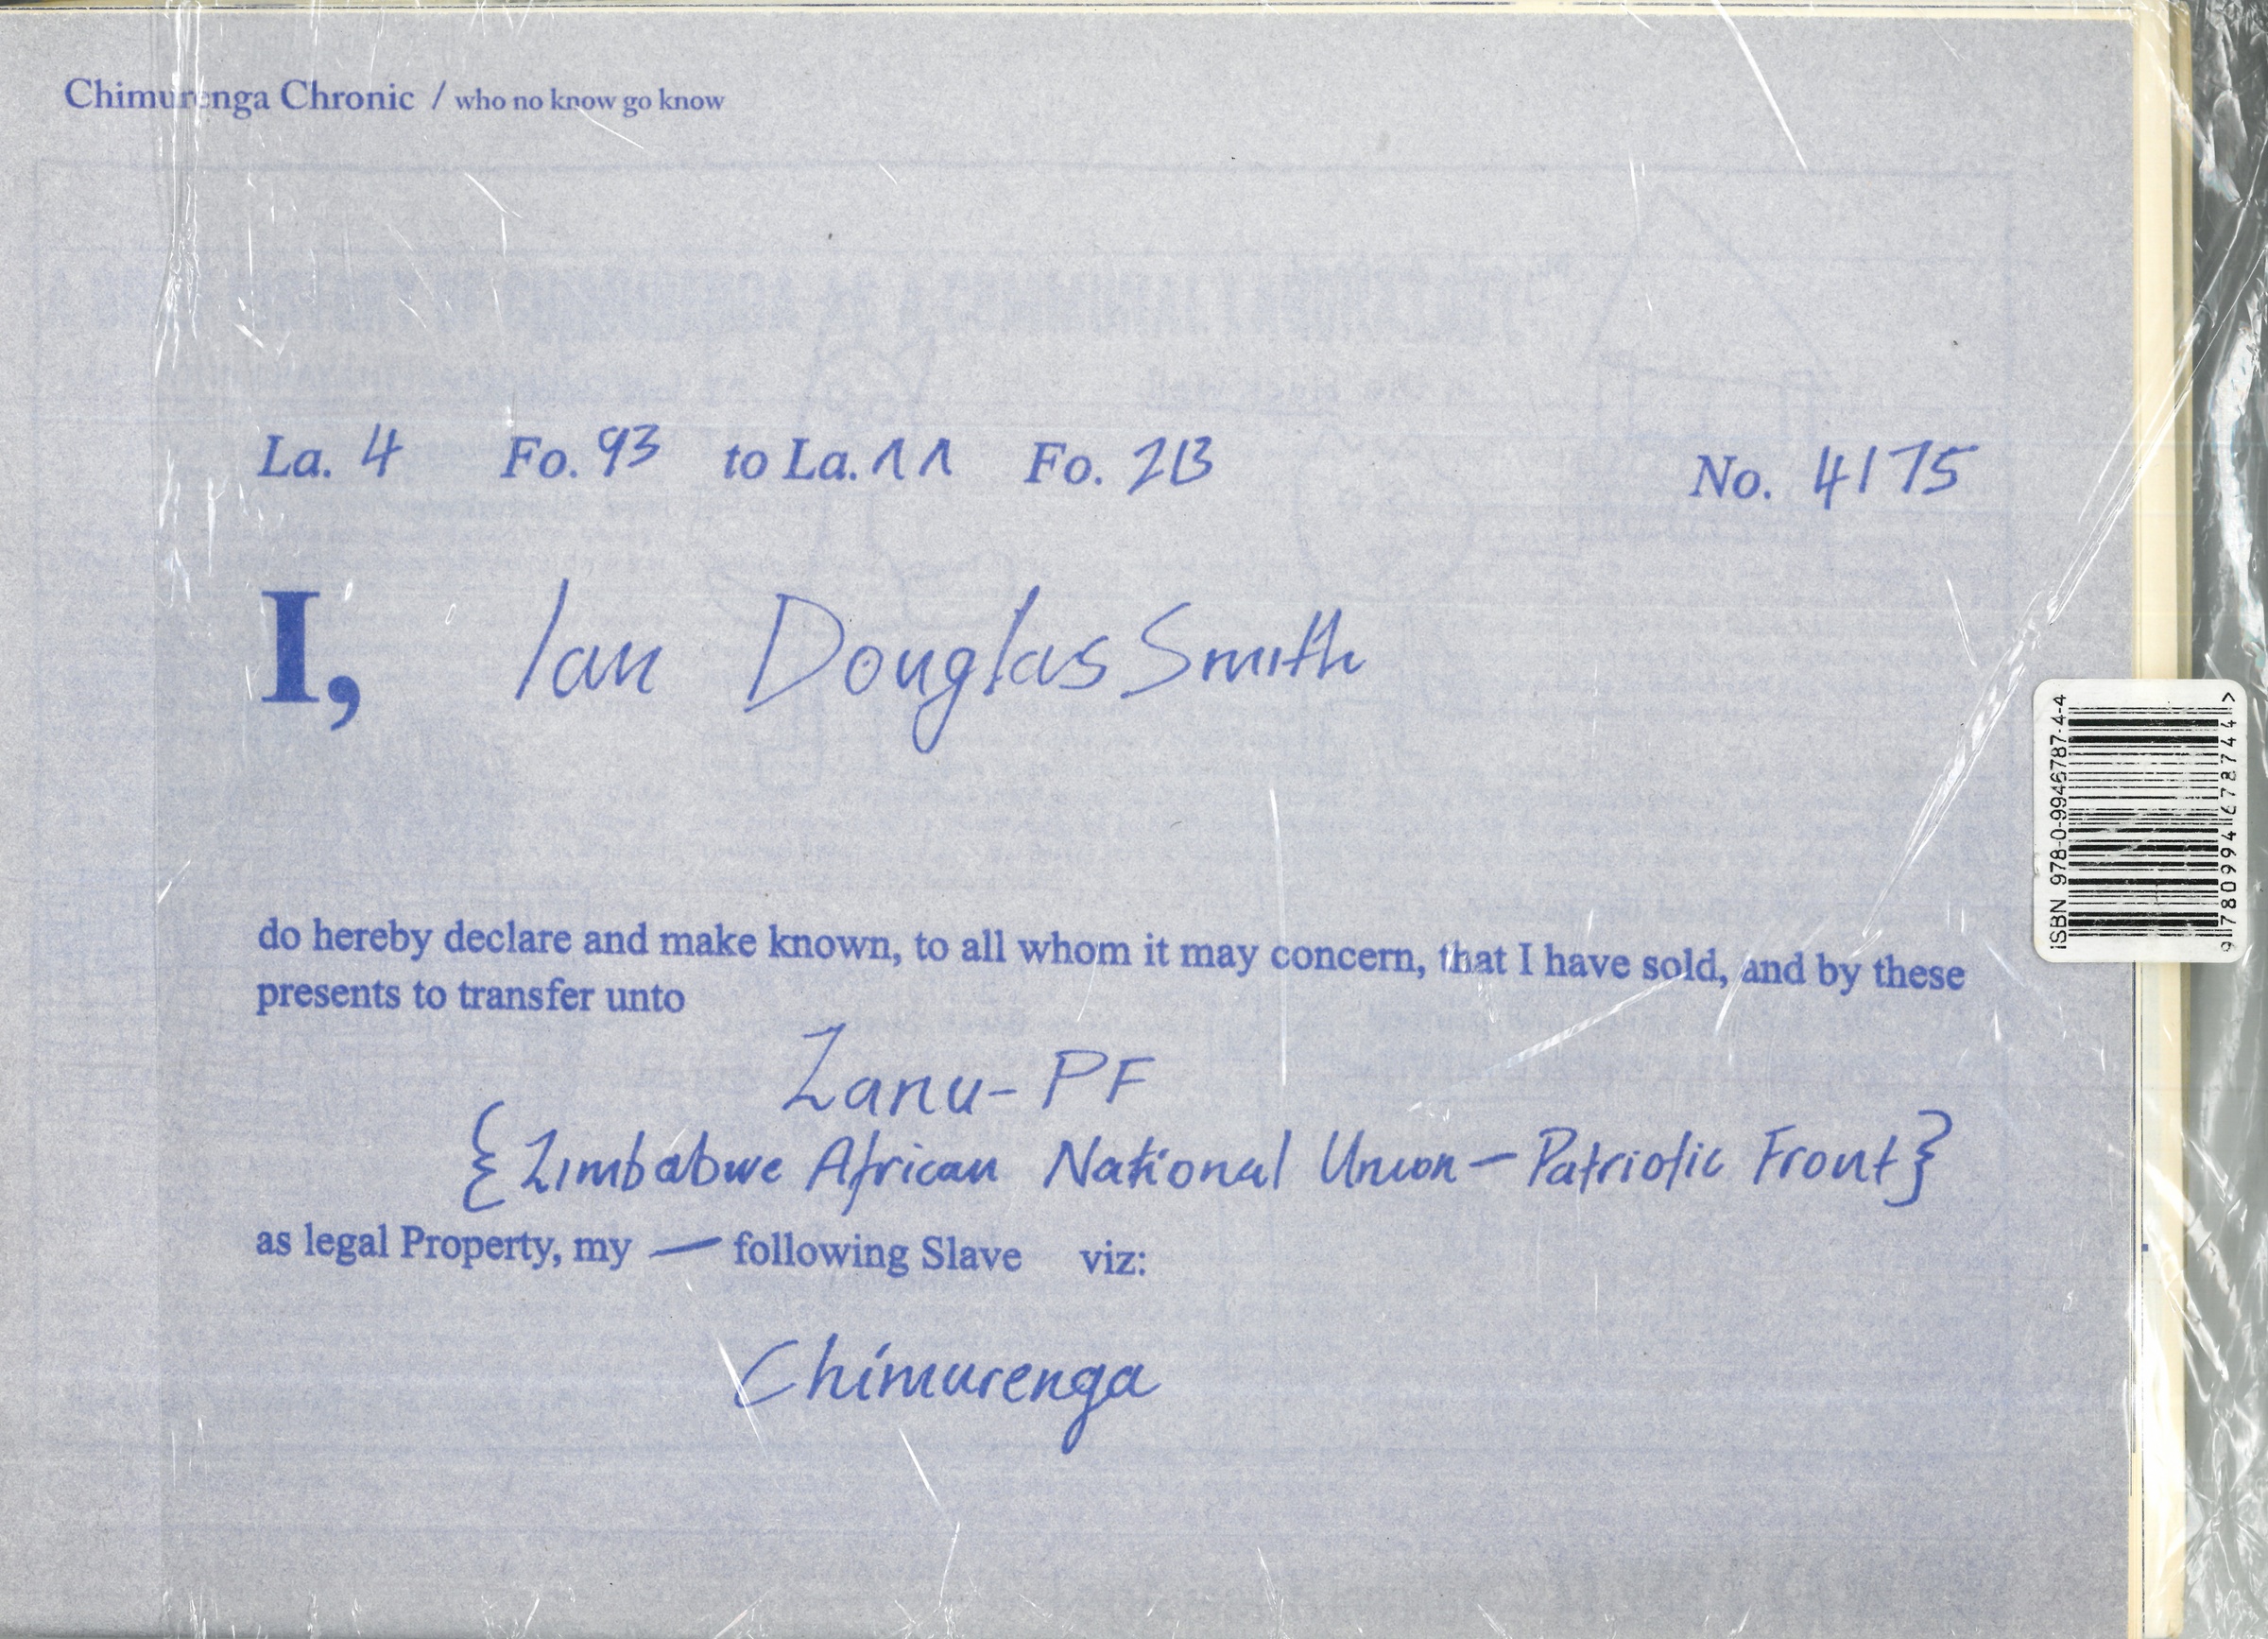 Chimurenga Chronic / who no know go know
La. 4 Fo. 93 to La. 11 Fo. 213 No. 4175
I, Ian Douglas Smith
do hereby declare and make known, to all whom it may concern, that I have sold, and by these
presents to transfer unto
Zanu-PF
{Zimbabwe African National Union – Patriotic Front}
as legal Property, my — following Slave viz:
Chimurenga
ISBN 978-0-9946787-4-4
9 780994 678744 >